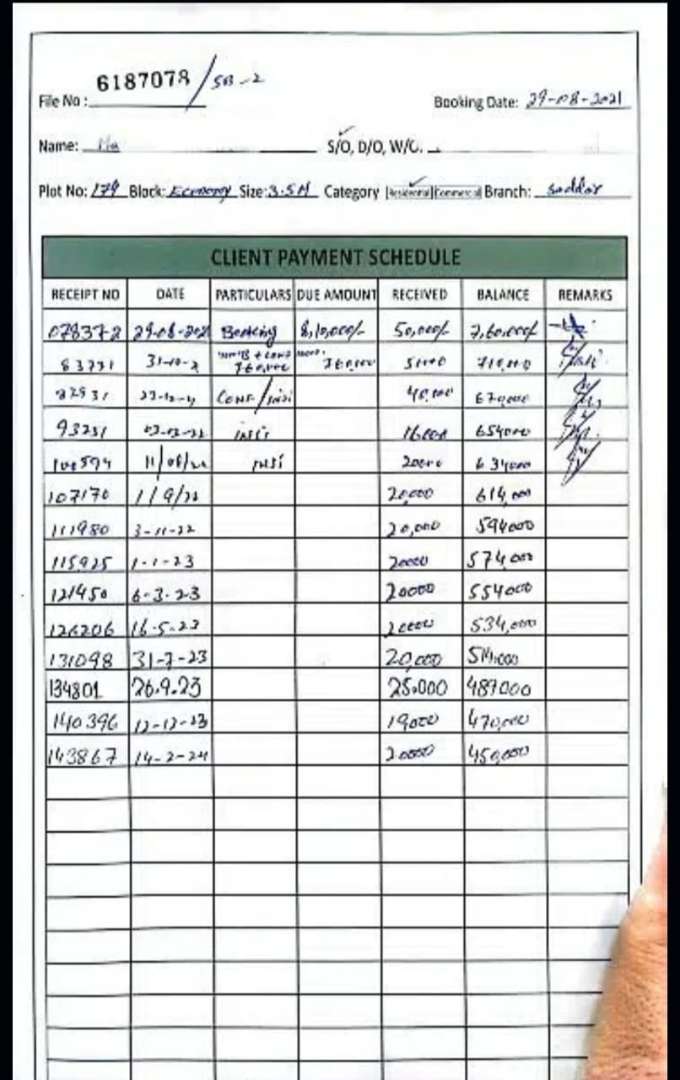 6187078/SB-2
File No :
Booking Date: 29-08-2021
Name: S/O, D/O, W/O.
Plot No: 179 Block: Economy Size: 3.5M Category Residential Commercial Branch: Saddar
CLIENT PAYMENT SCHEDULE
RECEIPT NO DATE PARTICULARS DUE AMOUNT RECEIVED BALANCE REMARKS
078372 29-08-2021 Booking 8,10,000/- 50,000/- 7,60,000/-
83731 760,000 760,000 710,000
40,000 670,000
93251 inst 16000 654000
100594 inst 20000 634000
107170 1/9/22 20,000 614,000
111980 3-11-22 20,000 594000
115925 1-1-23 20000 574,000
121450 6-3-23 20000 554000
126206 16-5-23 20000 534,000
131098 31-7-23 20,000 514,000
134801 26.9.23 25.000 489000
140396 12-12-23 19000 470,000
143867 14-2-24 20000 450,000